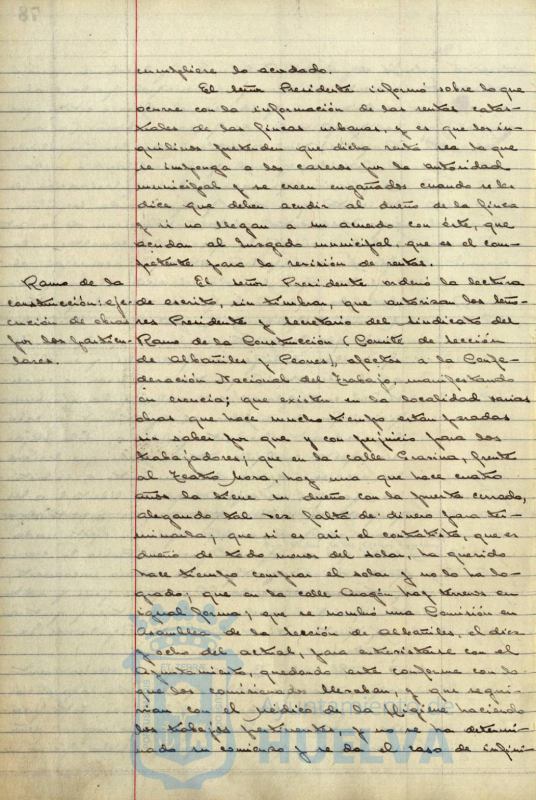 cumpliere lo acordado.
El señor Presidente informó sobre lo que
ocurre con la información de las rentas catas-
trales de las fincas urbanas, y es que los in-
quilinos pretenden que dicha renta sea la que
se imponga a los caseros por la autoridad
municipal y se creen engañados cuando se les
dice que deben acudir al dueño de la finca
y si no llegan a un acuerdo con éste, que
acudan al Juzgado municipal, que es el com-
petente para la revisión de rentas.
Ramo de la
construcción: eje-
cución de obras
por los particu-
lares.
El señor Presidente ordenó la lectura
de escrito, sin timbrar, que autorizan los seño-
res Presidente y Secretario del Sindicato del
Ramo de la Construcción (Comité de sección
de Albañiles y Peones), afectos a la Confe-
deración Nacional del Trabajo, manifestando
en esencia; que existen en la localidad varias
obras que hace mucho tiempo están paradas
sin saber por que y con perjuicio para los
trabajadores; que en la calle Gravina, frente
al Teatro Mora, hay una que hace cuatro
años la tiene su dueño con la puerta cerrada,
alegando tal vez falta de dinero para ter-
minarla, que si es así, el contratista, que es
dueño de todo menos del solar, ha querido
hace tiempo comprar el solar y no lo ha lo-
grado; que en la calle Aragón hay terrenos en
igual forma; que se nombró una Comisión en
Asamblea de la sección de Albañiles, el diez
y ocho del actual, para entrevistarse con el
Ayuntamiento, quedando este conforme con lo
que los comisionados llevaban, y que segui-
rían con el médico de la Higiene haciendo
los trabajos pertinentes, y no se ha determi-
nado su comienzo y se da el caso de infini-
HUELVA